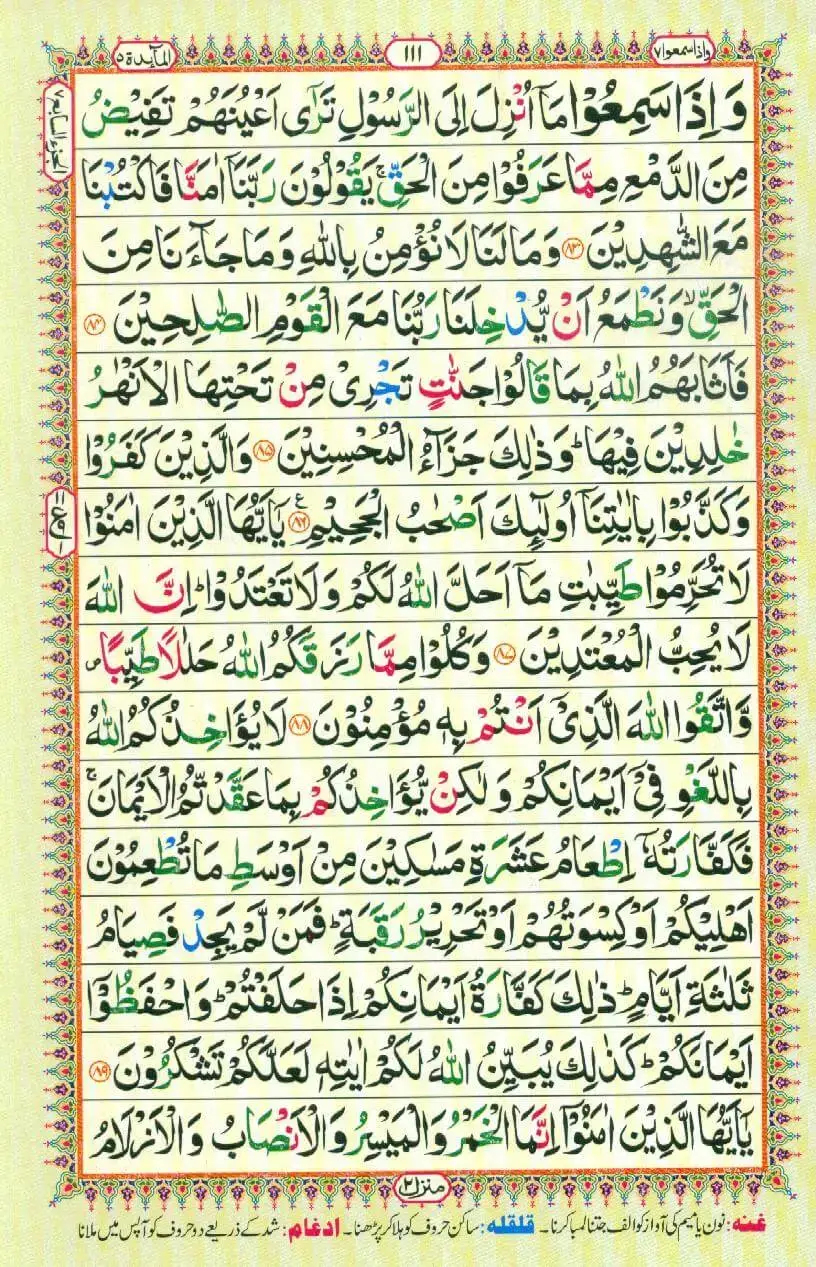 واذا سمعوا ۷
۱۱۱
المآىِٕدة ۵
الجزء السابع ۷
وَ اِذَا سَمِعُوْا مَاۤ اُنْزِلَ اِلَى الرَّسُوْلِ تَرٰۤى اَعْیُنَهُمْ تَفِیْضُ
مِنَ الدَّمْعِ مِمَّا عَرَفُوْا مِنَ الْحَقِّ ۚ یَقُوْلُوْنَ رَبَّنَاۤ اٰمَنَّا فَاكْتُبْنَا
مَعَ الشّٰهِدِیْنَ ﴿۸۳﴾ وَ مَا لَنَا لَا نُؤْمِنُ بِاللّٰهِ وَ مَا جَآءَنَا مِنَ
الْحَقِّ ۙ وَ نَطْمَعُ اَنْ یُّدْخِلَنَا رَبُّنَا مَعَ الْقَوْمِ الصّٰلِحِیْنَ ﴿۸۴﴾
فَاَثَابَهُمُ اللّٰهُ بِمَا قَالُوْا جَنّٰتٍ تَجْرِیْ مِنْ تَحْتِهَا الْاَنْهٰرُ
خٰلِدِیْنَ فِیْهَا ؕ وَ ذٰلِكَ جَزَآءُ الْمُحْسِنِیْنَ ﴿۸۵﴾ وَ الَّذِیْنَ كَفَرُوْا
وَ كَذَّبُوْا بِاٰیٰتِنَاۤ اُولٰٓىِٕكَ اَصْحٰبُ الْجَحِیْمِ ﴿۸۶﴾ یٰۤاَیُّهَا الَّذِیْنَ اٰمَنُوْا
لَا تُحَرِّمُوْا طَیِّبٰتِ مَاۤ اَحَلَّ اللّٰهُ لَكُمْ وَ لَا تَعْتَدُوْا ؕ اِنَّ اللّٰهَ
لَا یُحِبُّ الْمُعْتَدِیْنَ ﴿۸۷﴾ وَ كُلُوْا مِمَّا رَزَقَكُمُ اللّٰهُ حَلٰلًا طَیِّبًا ۪
وَّ اتَّقُوا اللّٰهَ الَّذِیْۤ اَنْتُمْ بِهٖ مُؤْمِنُوْنَ ﴿۸۸﴾ لَا یُؤَاخِذُكُمُ اللّٰهُ
بِاللَّغْوِ فِیْۤ اَیْمَانِكُمْ وَ لٰكِنْ یُّؤَاخِذُكُمْ بِمَا عَقَّدْتُّمُ الْاَیْمَانَ ۚ
فَكَفَّارَتُهٗۤ اِطْعَامُ عَشَرَةِ مَسٰكِیْنَ مِنْ اَوْسَطِ مَا تُطْعِمُوْنَ
اَهْلِیْكُمْ اَوْ كِسْوَتُهُمْ اَوْ تَحْرِیْرُ رَقَبَةٍ ؕ فَمَنْ لَّمْ یَجِدْ فَصِیَامُ
ثَلٰثَةِ اَیَّامٍ ؕ ذٰلِكَ كَفَّارَةُ اَیْمَانِكُمْ اِذَا حَلَفْتُمْ ؕ وَ احْفَظُوْۤا
اَیْمَانَكُمْ ؕ كَذٰلِكَ یُبَیِّنُ اللّٰهُ لَكُمْ اٰیٰتِهٖ لَعَلَّكُمْ تَشْكُرُوْنَ ﴿۸۹﴾
یٰۤاَیُّهَا الَّذِیْنَ اٰمَنُوْۤا اِنَّمَا الْخَمْرُ وَ الْمَیْسِرُ وَ الْاَنْصَابُ وَ الْاَزْلَامُ
منزل ۲
غنه: نون یا میم کی آواز کو الف جتنا لمبا کرنا۔ قلقله: ساکن حروف کو ہلا کر پڑھنا۔ ادغام: شد کے ذریعے دو حروف کو آپس میں ملانا